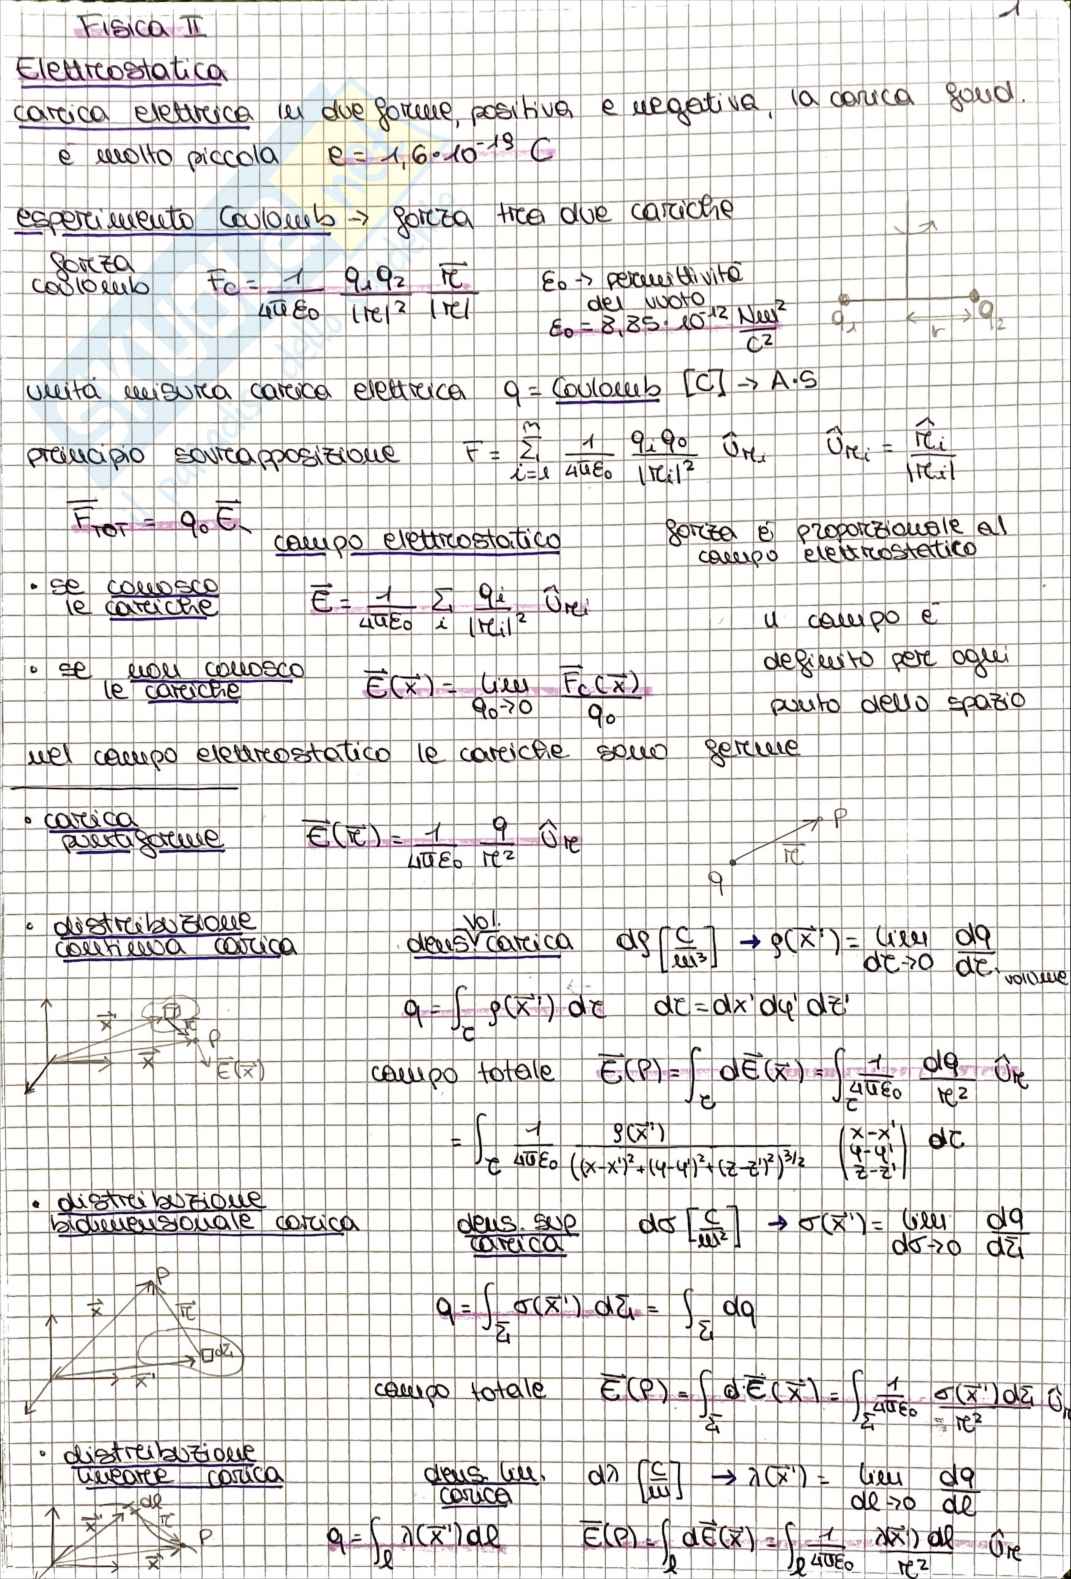 1
Fisica II
Elettrostatica
carica elettrica in due forme, positiva e negativa, la carica fond.
è molto piccola e = 1,6·10⁻¹⁹ C
esperimento Coulomb → forza tra due cariche
forza coulomb F_C = 1/(4πε₀) q₁q₂/|r|² r⃗/|r| ε₀ → permittività del vuoto
ε₀ = 8,85·10⁻¹² Nm²/C²
q₁ r q₂
unità misura carica elettrica q = Coulomb [C] → A·S
principio sovrapposizione F = Σ_{i=1}^{n} 1/(4πε₀) q_i q₀/|r_i|² Û_{ri} Û_{ri} = r̂_i/|r_i|
F⃗_TOT = q₀ E⃗ campo elettrostatico forza è proporzionale al campo elettrostatico
• se conosco le cariche E⃗ = 1/(4πε₀) Σ_i q_i/|r_i|² Û_{ri}
il campo è definito per ogni punto dello spazio
• se non conosco le cariche E⃗(x⃗) = lim_{q₀→0} F⃗_C(x⃗)/q₀
nel campo elettrostatico le cariche sono ferme
• carica puntiforme E⃗(r⃗) = 1/(4πε₀) q/r² Û_r
P r⃗ q
• distribuzione continua carica dens. vol. carica dρ [C/m³] → ρ(x⃗') = lim_{dτ→0} dq/dτ volume
q = ∫_τ ρ(x⃗') dτ dτ = dx' dy' dz'
x⃗' r⃗ P x⃗ E⃗(x⃗)
campo totale E⃗(P) = ∫_τ dE⃗(x⃗) = ∫_τ 1/(4πε₀) dq/r² Û_r
= ∫_τ 1/(4πε₀) ρ(x⃗')/((x-x')²+(y-y')²+(z-z')²)^{3/2} (x-x' y-y' z-z') dτ
• distribuzione bidimensionale carica dens. sup carica dσ [C/m²] → σ(x⃗') = lim_{dσ→0} dq/dΣ
P x⃗ r⃗ dΣ x⃗'
q = ∫_Σ σ(x⃗') dΣ = ∫_Σ dq
campo totale E⃗(P) = ∫_Σ dE⃗(x⃗) = ∫_Σ 1/(4πε₀) σ(x⃗')dΣ/r² Û_r
• distribuzione lineare carica dens. lin. carica dλ [C/m] → λ(x⃗') = lim_{dl→0} dq/dl
dl x⃗' r⃗ P x⃗
q = ∫_l λ(x⃗')dl E⃗(P) = ∫_l dE⃗(x⃗) = ∫_l 1/(4πε₀) λ(x⃗')dl/r² Û_r